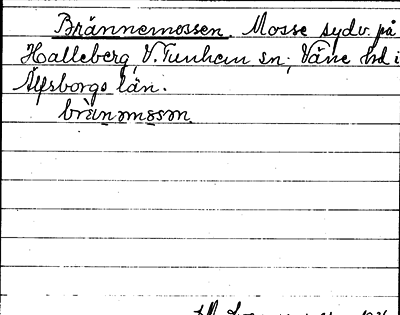 Brännemossen. Mosse sydv. på
Halleberg, V. Tunhem sn; Väne hd i
Älfsborgs län.
brànmɔsɔn